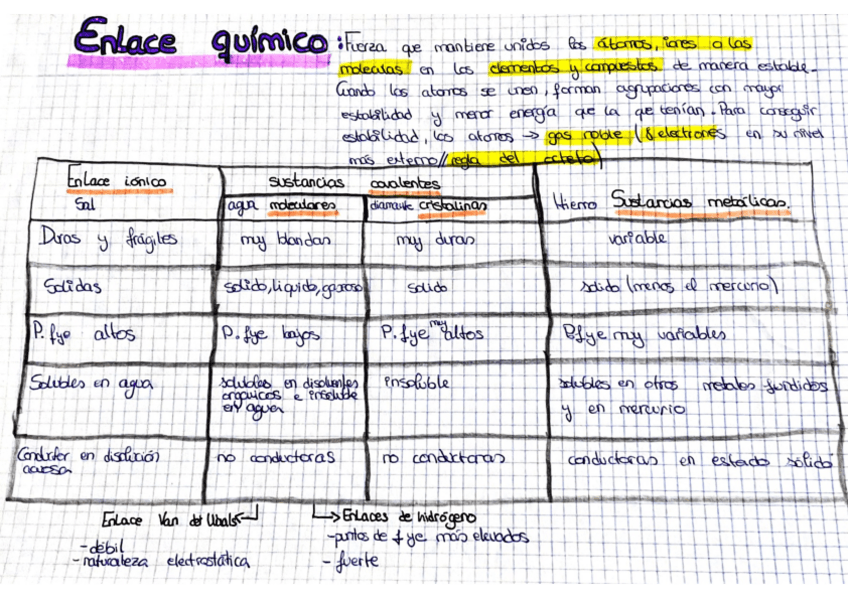 Enlace químico : Fuerza que mantiene unidos los átomos, iones o las
moleculas en los elementos y compuestos de manera estable.
Cuando los atomos se unen, forman agrupaciones con mayor
estabilidad y menor energía que la que tenían. Para conseguir
estabilidad, los atomos → gas noble (8 electrones en su nivel
más externo // regla del octeto)
Enlace iónico
Sal
sustancias covalentes
agua moleculares
diamante cristalinas
Hierro Sustancias metálicas.
Duras y frágiles
muy blandas
muy duras
variable
Solidas
solido, liquido, gaseoso
solido
solido (menos el mercurio)
P. f y e altos
P. f y e bajos
P. f y e muy altos
P. f y e muy variables
Solubles en agua
solubles en disolventes
organicos e insoluble
en agua
insoluble
solubles en otros metales fundidos
y en mercurio
Conductor en disolución
acuosa
no conductoras
no conductoras
conductoras en estado solido
Enlace Van der Waals
- débil
- naturaleza electrostática
Enlaces de hidrógeno
- puntos de f y e más elevados
- fuerte